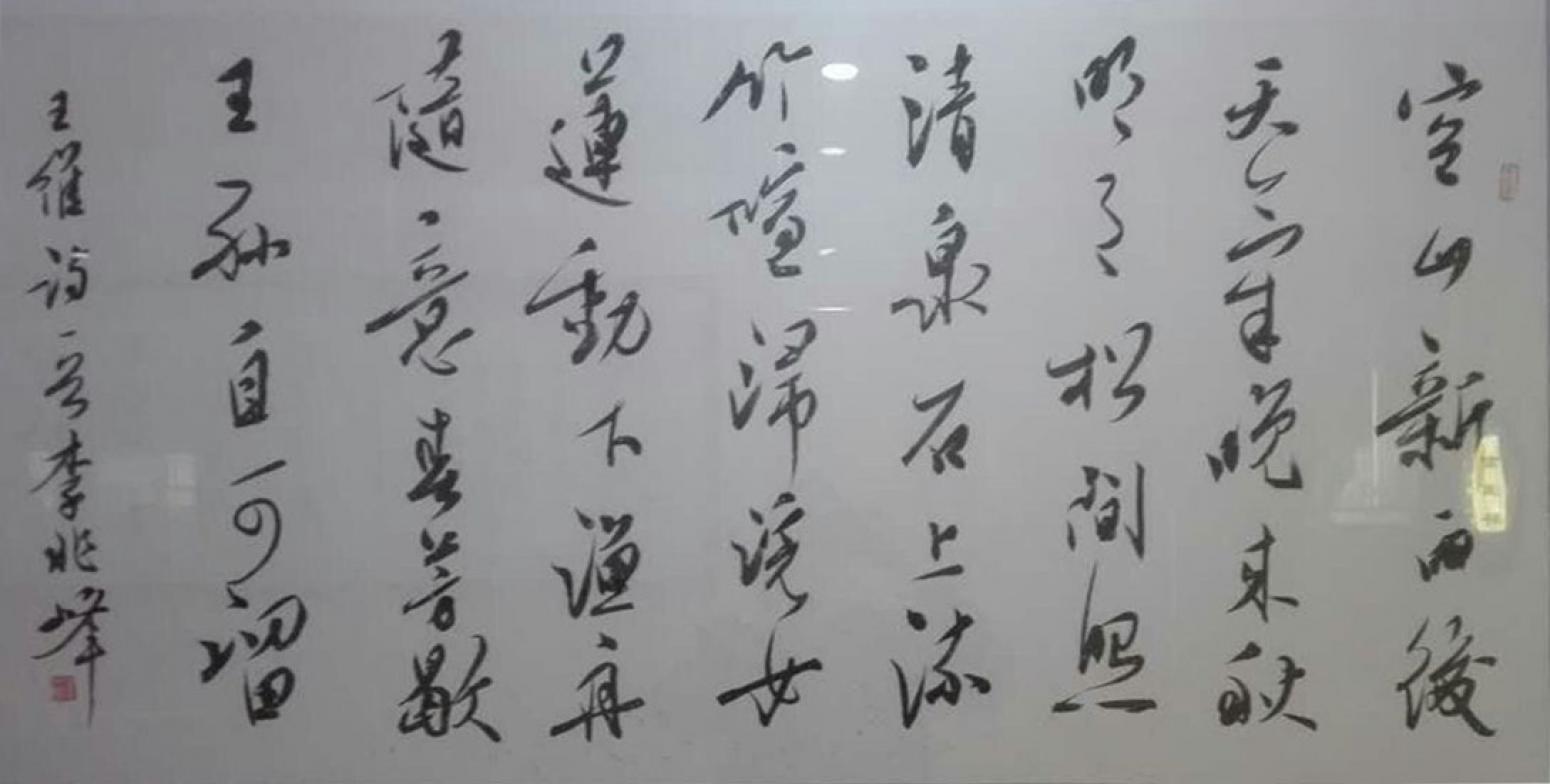 空山新雨後
天氣晚来秋
明月松間照
清泉石上流
竹喧歸浣女
蓮動下漁舟
隨意春芳歇
王孫自可留
王維詩一首李兆峰